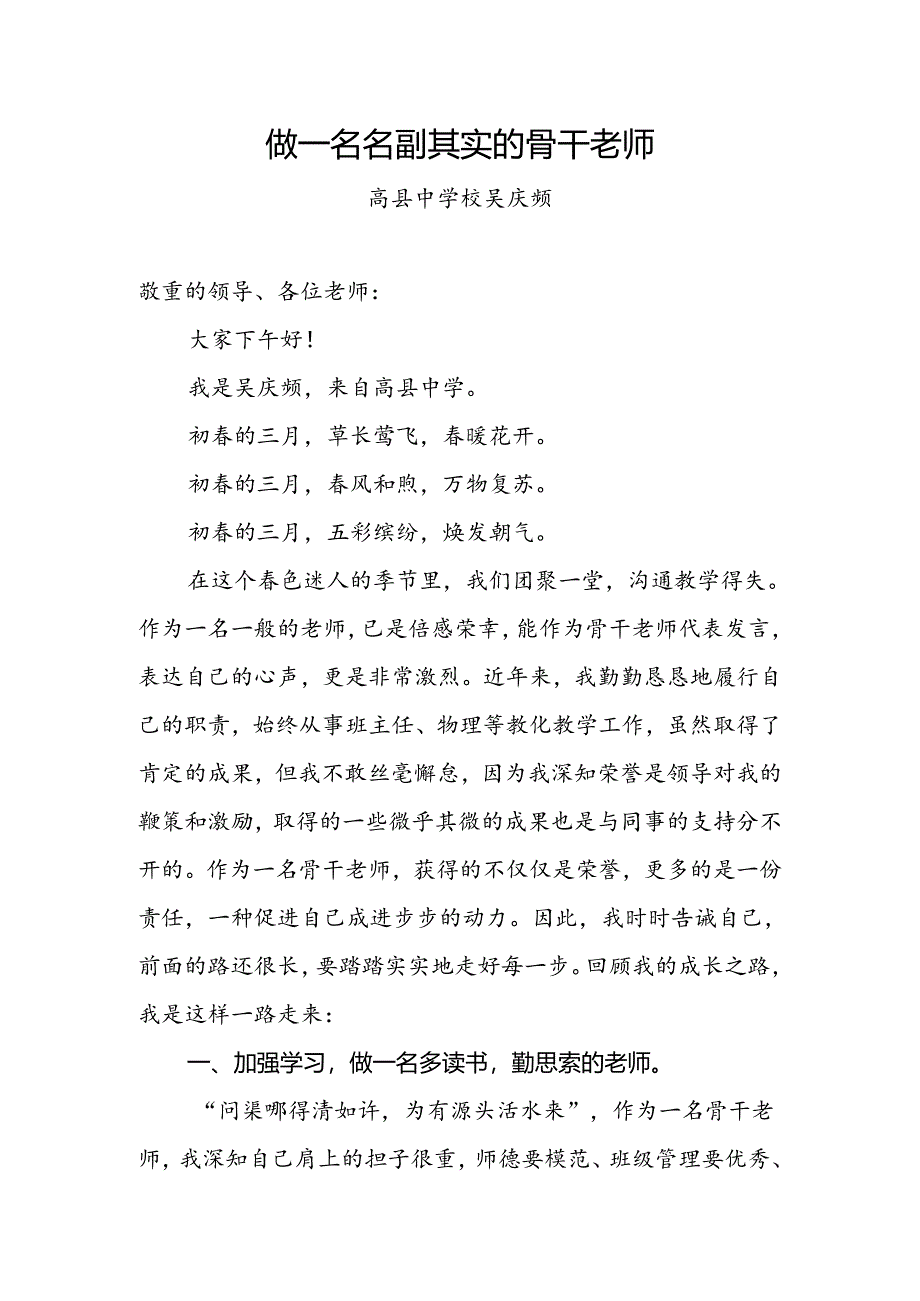 做一名名副其实的骨干老师
高县中学校吴庆频
敬重的领导、各位老师：
大家下午好！
我是吴庆频，来自高县中学。
初春的三月，草长莺飞，春暖花开。
初春的三月，春风和煦，万物复苏。
初春的三月，五彩缤纷，焕发朝气。
在这个春色迷人的季节里，我们团聚一堂，沟通教学得失。
作为一名一般的老师，已是倍感荣幸，能作为骨干老师代表发言，
表达自己的心声，更是非常激烈。近年来，我勤勤恳恳地履行自
己的职责，始终从事班主任、物理等教化教学工作，虽然取得了
肯定的成果，但我不敢丝毫懈怠，因为我深知荣誉是领导对我的
鞭策和激励，取得的一些微乎其微的成果也是与同事的支持分不
开的。作为一名骨干老师，获得的不仅仅是荣誉，更多的是一份
责任，一种促进自己成进步步的动力。因此，我时时告诫自己，
前面的路还很长，要踏踏实实地走好每一步。回顾我的成长之路，
我是这样一路走来：
一、加强学习，做一名多读书，勤思索的老师。
“问渠哪得清如许，为有源头活水来”，作为一名骨干老
师，我深知自己肩上的担子很重，师德要模范、班级管理要优秀、